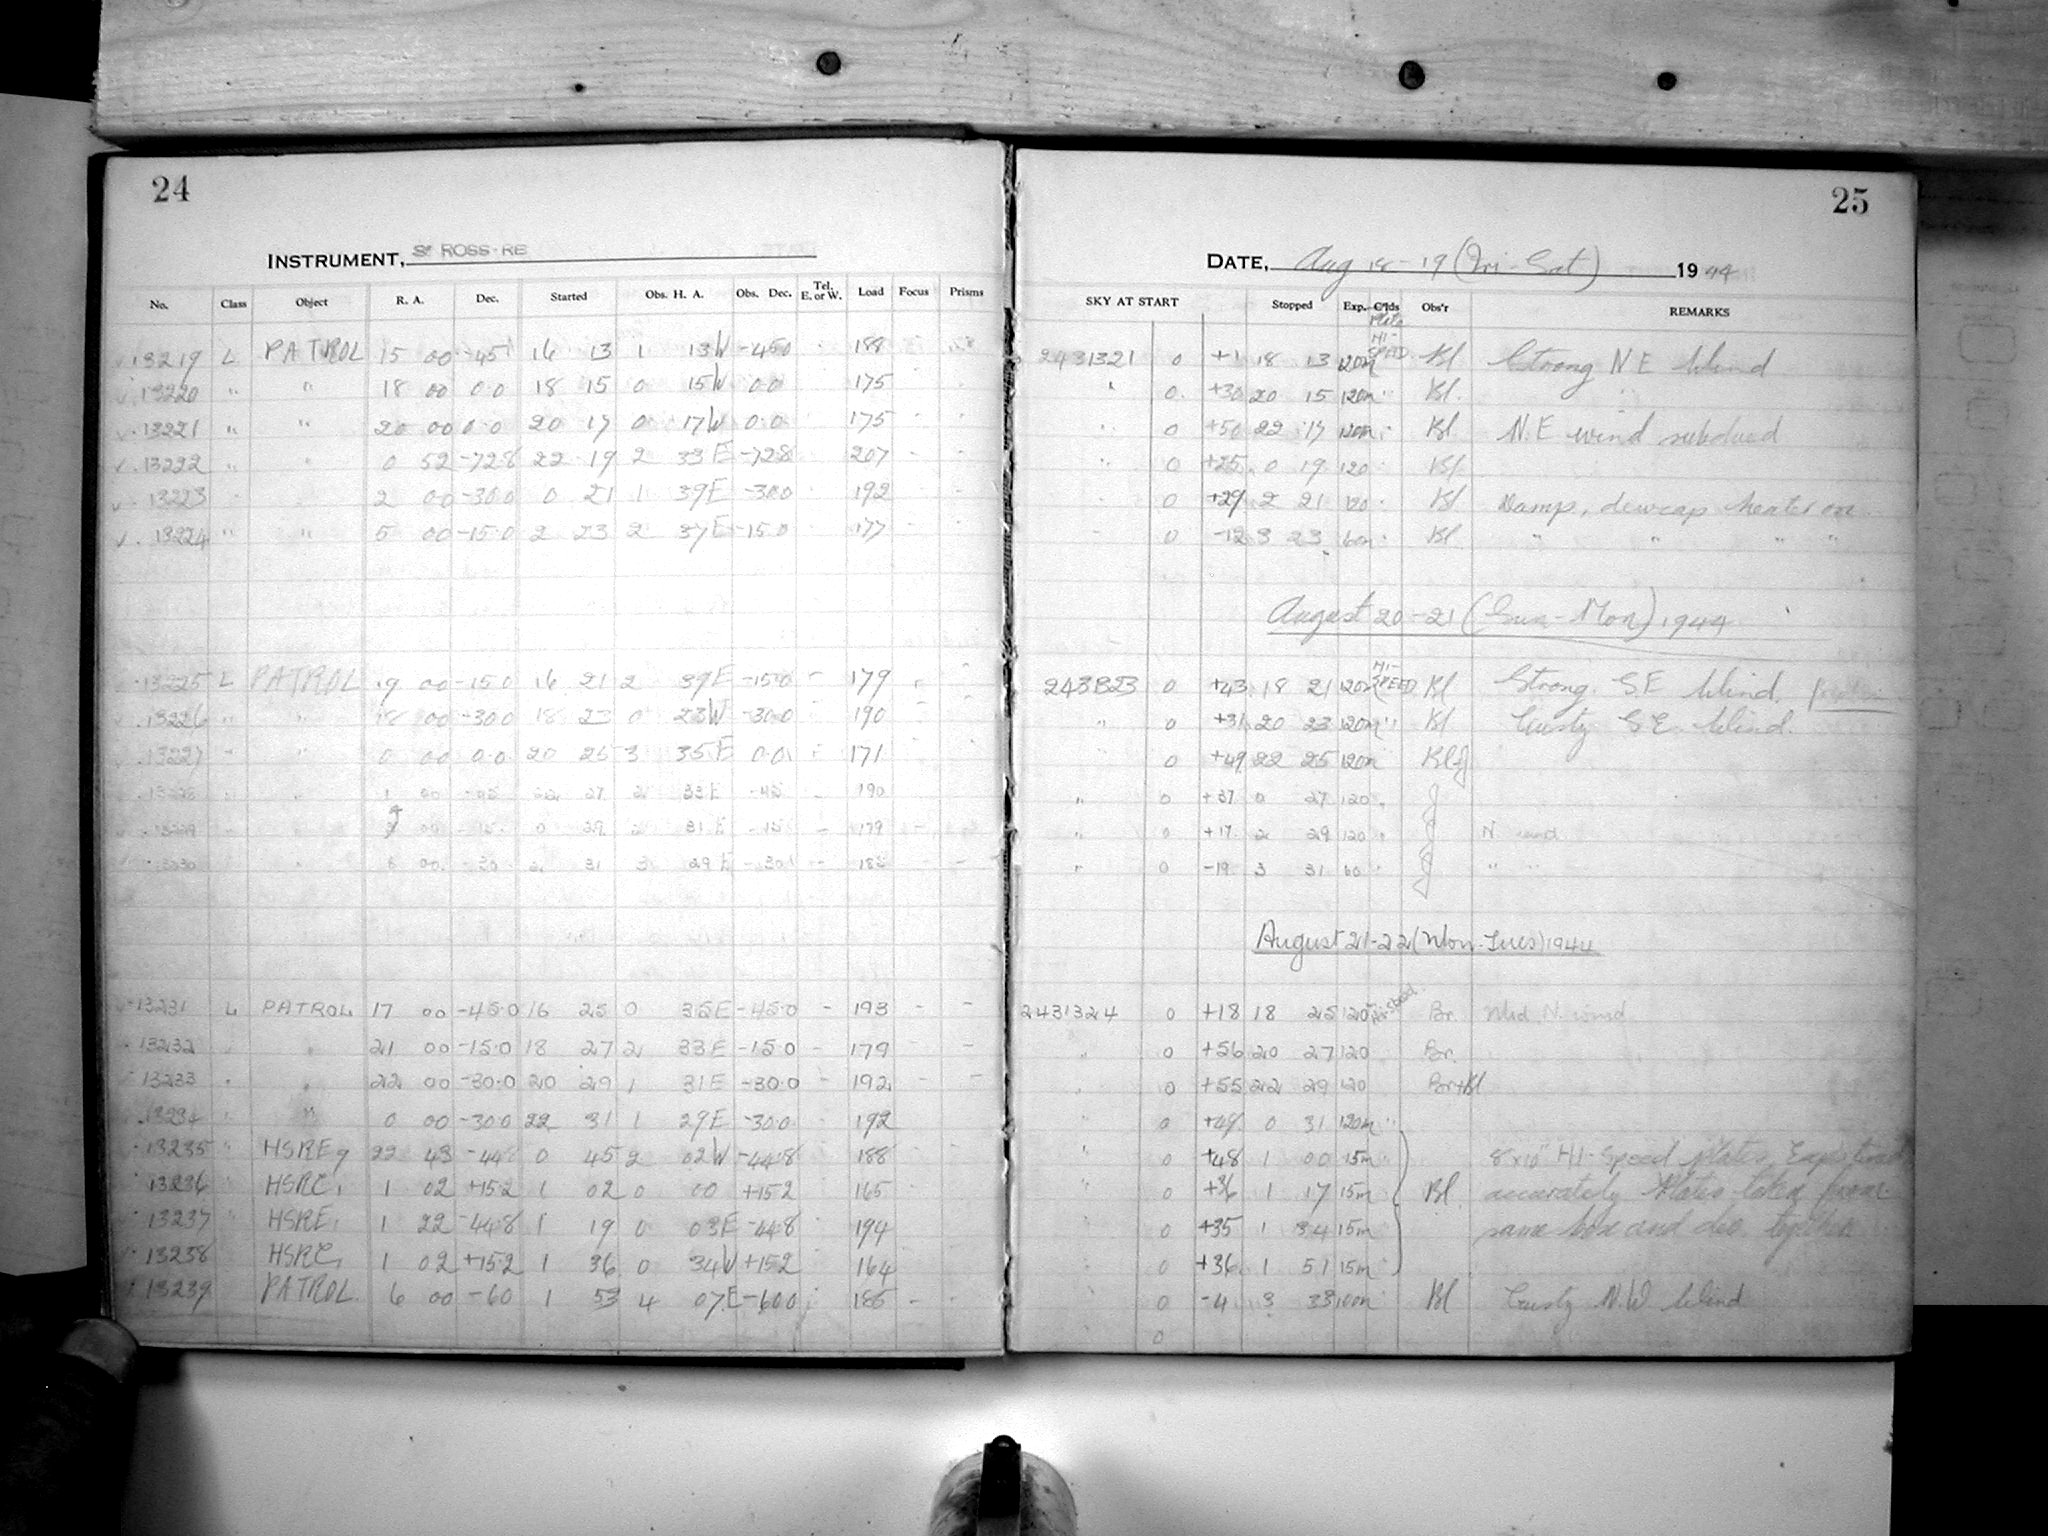 24
INSTRUMENT, ROSS-RE
No. Class Object R. A. Dec. Started Obs. H. A. Obs. Dec. Tel. E. or W. Load Focus Prisms
13219 L PATROL 15 00 -45 16 13 1 13W -450 188
13220 " " 18 00 0.0 18 15 0 15W 0.0 175
13221 " " 20 00 0.0 20 17 0 17W 0.0 175
13222 " " 0 52 -72.8 22 19 2 33E -72.8 207
13223 2 00 -30.0 0 21 1 39E -30.0 192
13224 " " 5 00 -15.0 2 23 2 37E -15.0 177
13225 L PATROL 19 00 -15.0 16 21 2 39E -15.0 179
13226 " " 18 00 -30.0 18 23 0 23W -30.0 190
13227 " " 0 00 0.0 20 25 3 35E 0.0 171
13228 " " 1 00 -45 22 27 2 33E -45 190
13229 " " 00 -15 0 29 2 31E -15 179
13230 " 00 -30 2 31 3 29E -30
13231 L PATROL 17 00 -45.0 16 25 0 35E -45.0 193
13232 " 21 00 -15.0 18 27 2 33E -15.0 179
13233 " 22 00 -30.0 20 29 1 31E -30.0 192
13234 " 0 00 -30.0 22 31 1 29E -30.0 192
13235 " HSRE 22 43 -44.8 0 45 2 02W -44.8 188
13236 1 02 +15.2 1 02 0 00 +15.2 165
13237 HSRE 1 22 -44.8 1 19 0 03E -44.8 194
13238 1 02 +15.2 1 36 0 34W +15.2 164
13239 PATROL 6 00 -60 1 53 4 07E -60.0 185
25
DATE, Aug 18-19 (Fri-Sat) 1944
SKY AT START Stopped Exp. C'lds Obs'r REMARKS
Plate
2431321 0 +1 18 13 120m HI-SPEED Bl Strong N E Wind
" 0 +30 20 15 120m " Bl. "
" 0 +50 22 17 120m " Bl N.E wind subdued
" 0 +25 0 19 120 " Bl.
0 +29 2 21 120 " Bl Damp, dewcap heater on
0 -12 3 23 60m " Bl " " " "
August 20-21 (Sun-Mon) 1944
2431323 0 +43 18 21 120m HI-SPEED Bl Strong S.E Wind.
" 0 +31 20 23 120m " Bl Gusty S.E. Wind.
0 +49 22 25 120m
" 0 +37 0 27 120 " J
" 0 +17 2 29 120 " J N. wind
" 0 -19 3 31 60 " J " "
August 21-22 (Mon-Tues) 1944
2431324 0 +18 18 25 120 Br. Mod. N. wind
" 0 +56 20 27 120 Br.
" 0 +55 22 29 120 Br+Bl
" 0 +49 0 31 120m "
" 0 +48 1 00 15m 8x10" HI-Speed plates.
" 0 +36 1 17 15m Bl. accurately Plates taken from
0 +35 1 34 15m same box and dev. together
0 +36 1 51 15m
0 -4 3 33 100m Bl Gusty N.W Wind
0